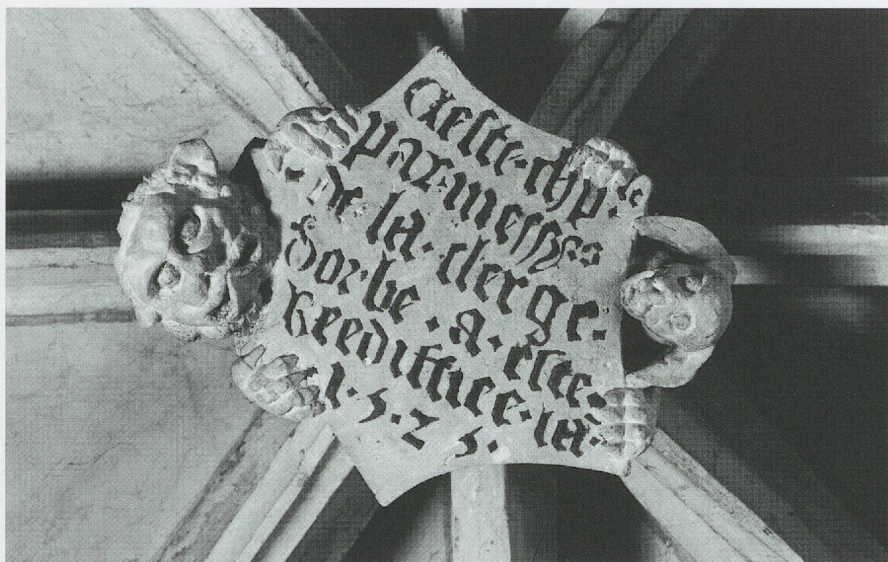 Ceste·chp·le
par·messrs
·de la·clerge·
Sorbe·a·este·
Reediffice·lã·
1·5·2 5·